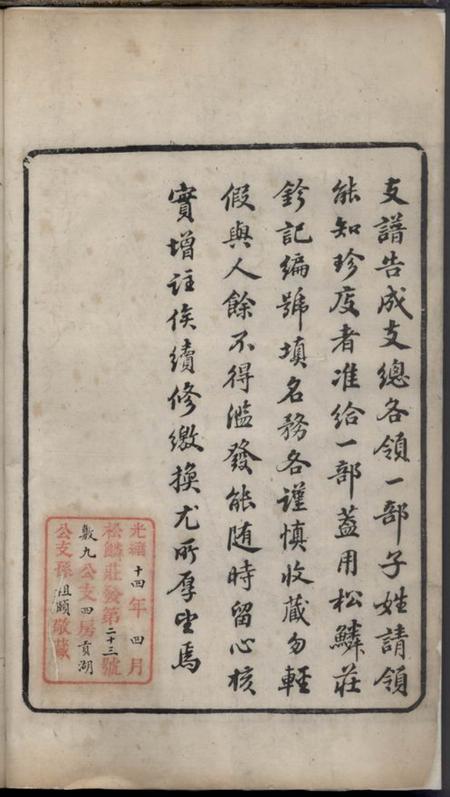 支譜告成支總各領一部子姓請領
能知珍度者准給一部蓋用松鱗莊
鈐記編號填名務各謹慎收藏勿輕
假與人餘不得濫發能随時留心核
實增註俟續修繳換尤所厚望焉
光緒十四年四月
松鱗莊發第二十三號
敷九公支四房貢湖
公支孫祖頤敬藏